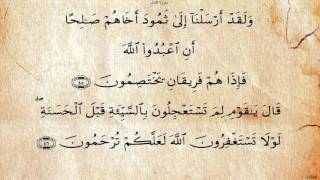 وَلَقَدْ أَرْسَلْنَآ إِلَىٰ ثَمُودَ أَخَاهُمْ صَـٰلِحًا
أَنِ ٱعْبُدُوا۟ ٱللَّهَ
فَإِذَا هُمْ فَرِيقَانِ يَخْتَصِمُونَ ٤٥
قَالَ يَـٰقَوْمِ لِمَ تَسْتَعْجِلُونَ بِٱلسَّيِّئَةِ قَبْلَ ٱلْحَسَنَةِ ۖ
لَوْلَا تَسْتَغْفِرُونَ ٱللَّهَ لَعَلَّكُمْ تُرْحَمُونَ ٤٦